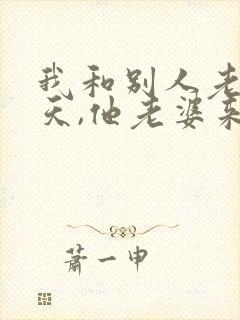 我和别人老
天,他老婆来
萧一申